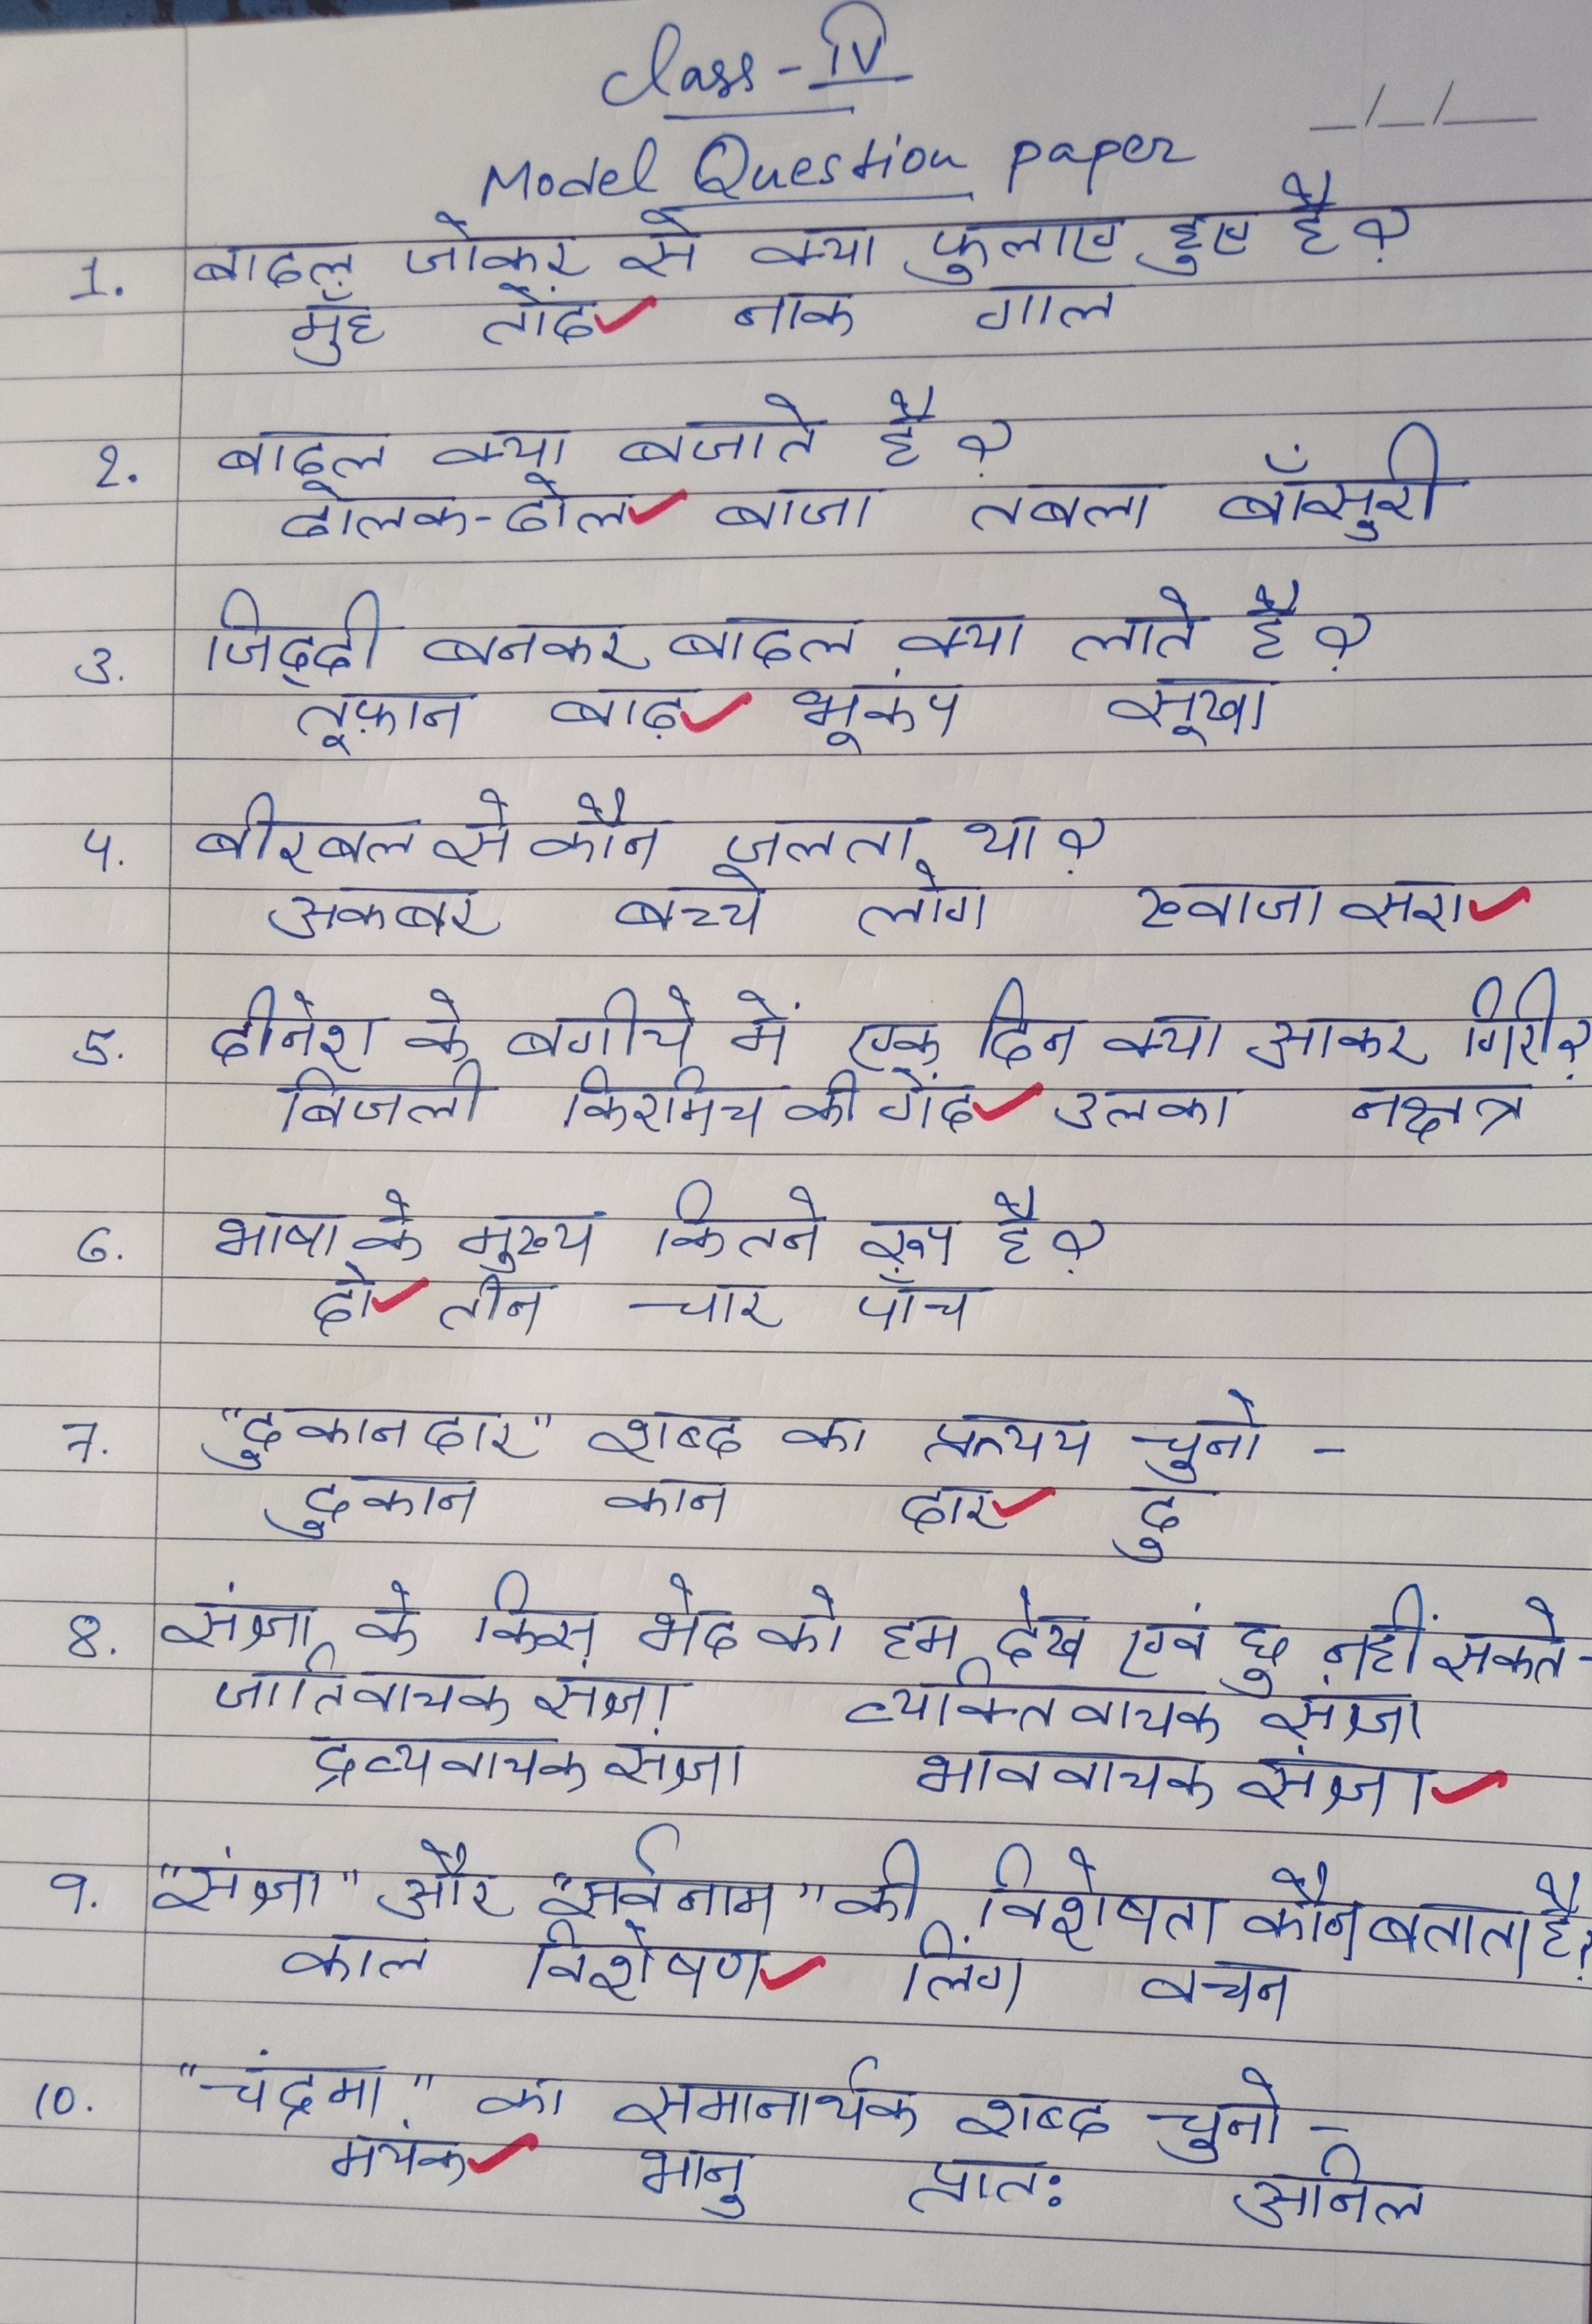 Class - IV
_/_/__
Model Question paper
1. बादल जोकर से क्या फुलाए हुए है?
मुँह तोंद✓ नाक गाल
2. बादल क्या बजाते है?
ढोलक-ढोल✓ बाजा तबला बाँसुरी
3. जिद्दी बनकर बादल क्या लाते है?
तूफ़ान बाढ़✓ भूकंप सूखा
4. बीरबल से कौन जलता था?
अकबर बच्चे लोग ख्वाजा सरा✓
5. दीनेश के बगीचे में एक दिन क्या आकर गिरी?
बिजली किरमिच की गेंद✓ उलका नक्षत्र
6. भाषा के मुख्य कितने रूप है?
दो✓ तीन चार पाँच
7. "दुकानदार" शब्द का प्रत्यय चुनो -
दुकान कान दार✓ दु
8. संज्ञा के किस भेद को हम देख एवं छु नहीं सकते -
जातिवाचक संज्ञा व्यक्तिवाचक संज्ञा
द्रव्यवाचक संज्ञा भाववाचक संज्ञा✓
9. "संज्ञा" और "सर्वनाम" की विशेषता कौन बताता है?
काल विशेषण✓ लिंग वचन
10. "चंद्रमा" का समानार्थक शब्द चुनो -
मयंक✓ भानु प्रातः अनिल